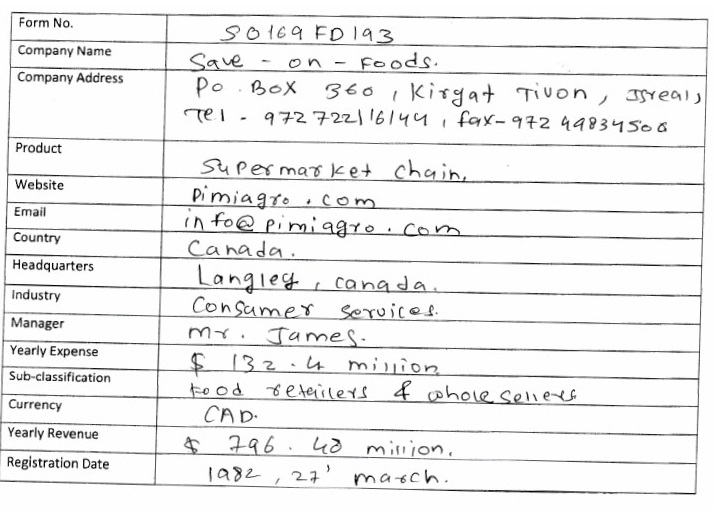 Form No. S0169FD193
Company Name Save - on - Foods.
Company Address Po. Box 360, Kirgat Tivon, Isreal,
Tel - 972 722116144, fax-972 49834506
Product Supermarket chain.
Website Pimiagro.com
Email info@pimiagro.com
Country Canada.
Headquarters Langley, canada.
Industry Consamer services.
Manager mr. James.
Yearly Expense $ 132.4 million
Sub-classification Food retailers & whole sellers
Currency CAD.
Yearly Revenue $ 796.48 million.
Registration Date 1982, 27' march.